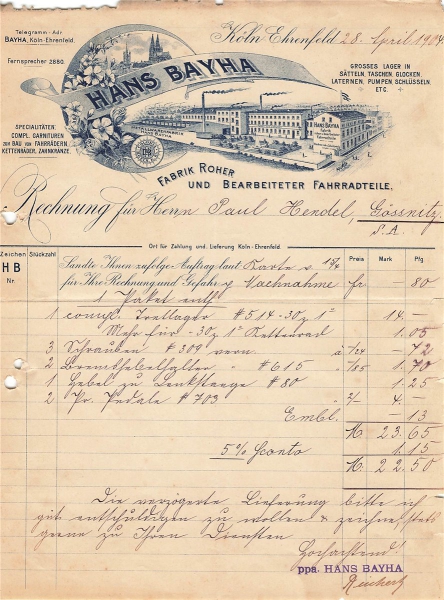 Telegramm-Adr.
BAYHA, Köln-Ehrenfeld.
Fernsprecher 2880.
Köln-Ehrenfeld 28. April 1904
HANS BAYHA
GROSSES LAGER IN
SÄTTELN, TASCHEN, GLOCKEN,
LATERNEN, PUMPEN SCHLÜSSELN
ETC.
SPECIALITÄTEN:
COMPL. GARNITUREN
ZUM BAU VON FAHRRÄDERN
KETTENRÄDER, ZAHNKRÄNZE.
HANS BAYHA
FABRIK ROHER
UND BEARBEITETER FAHRRADTEILE.
Rechnung für Herrn Paul Hendel, Gössnitz
S.A.
Ort für Zahlung und Lieferung Köln-Ehrenfeld.
Zeichen Stückzahl Preis Mark Pfg
HB
Nr.
Sandte Ihnen zufolge Auftrag laut Karte v 15/4
für Ihre Rechnung und Gefahr p Nachnahme fr — 80
1 Paket enth
1 compl. Tretlager # 514 - 30 z 1" 14. —
Mehr für - 30 z 1" Kettenrad 1.05
3 Schrauben # 309 vern. à /24 — 72
2 Bremshebelhalter " # 615 à /85 1.70
1 Hebel zu Lenkstange # 80 1.25
2 Pr. Pedale # 703 2/- 4. —
Embl. — 13
M. 23.65
5 % Sconto 1.15
M. 22.50
Die verzögerte Lieferung bitte ich
gut entschuldigen zu wollen & zeichne stets
gerne zu Ihren Diensten
Hochachtend.
ppa. HANS BAYHA
Reichert